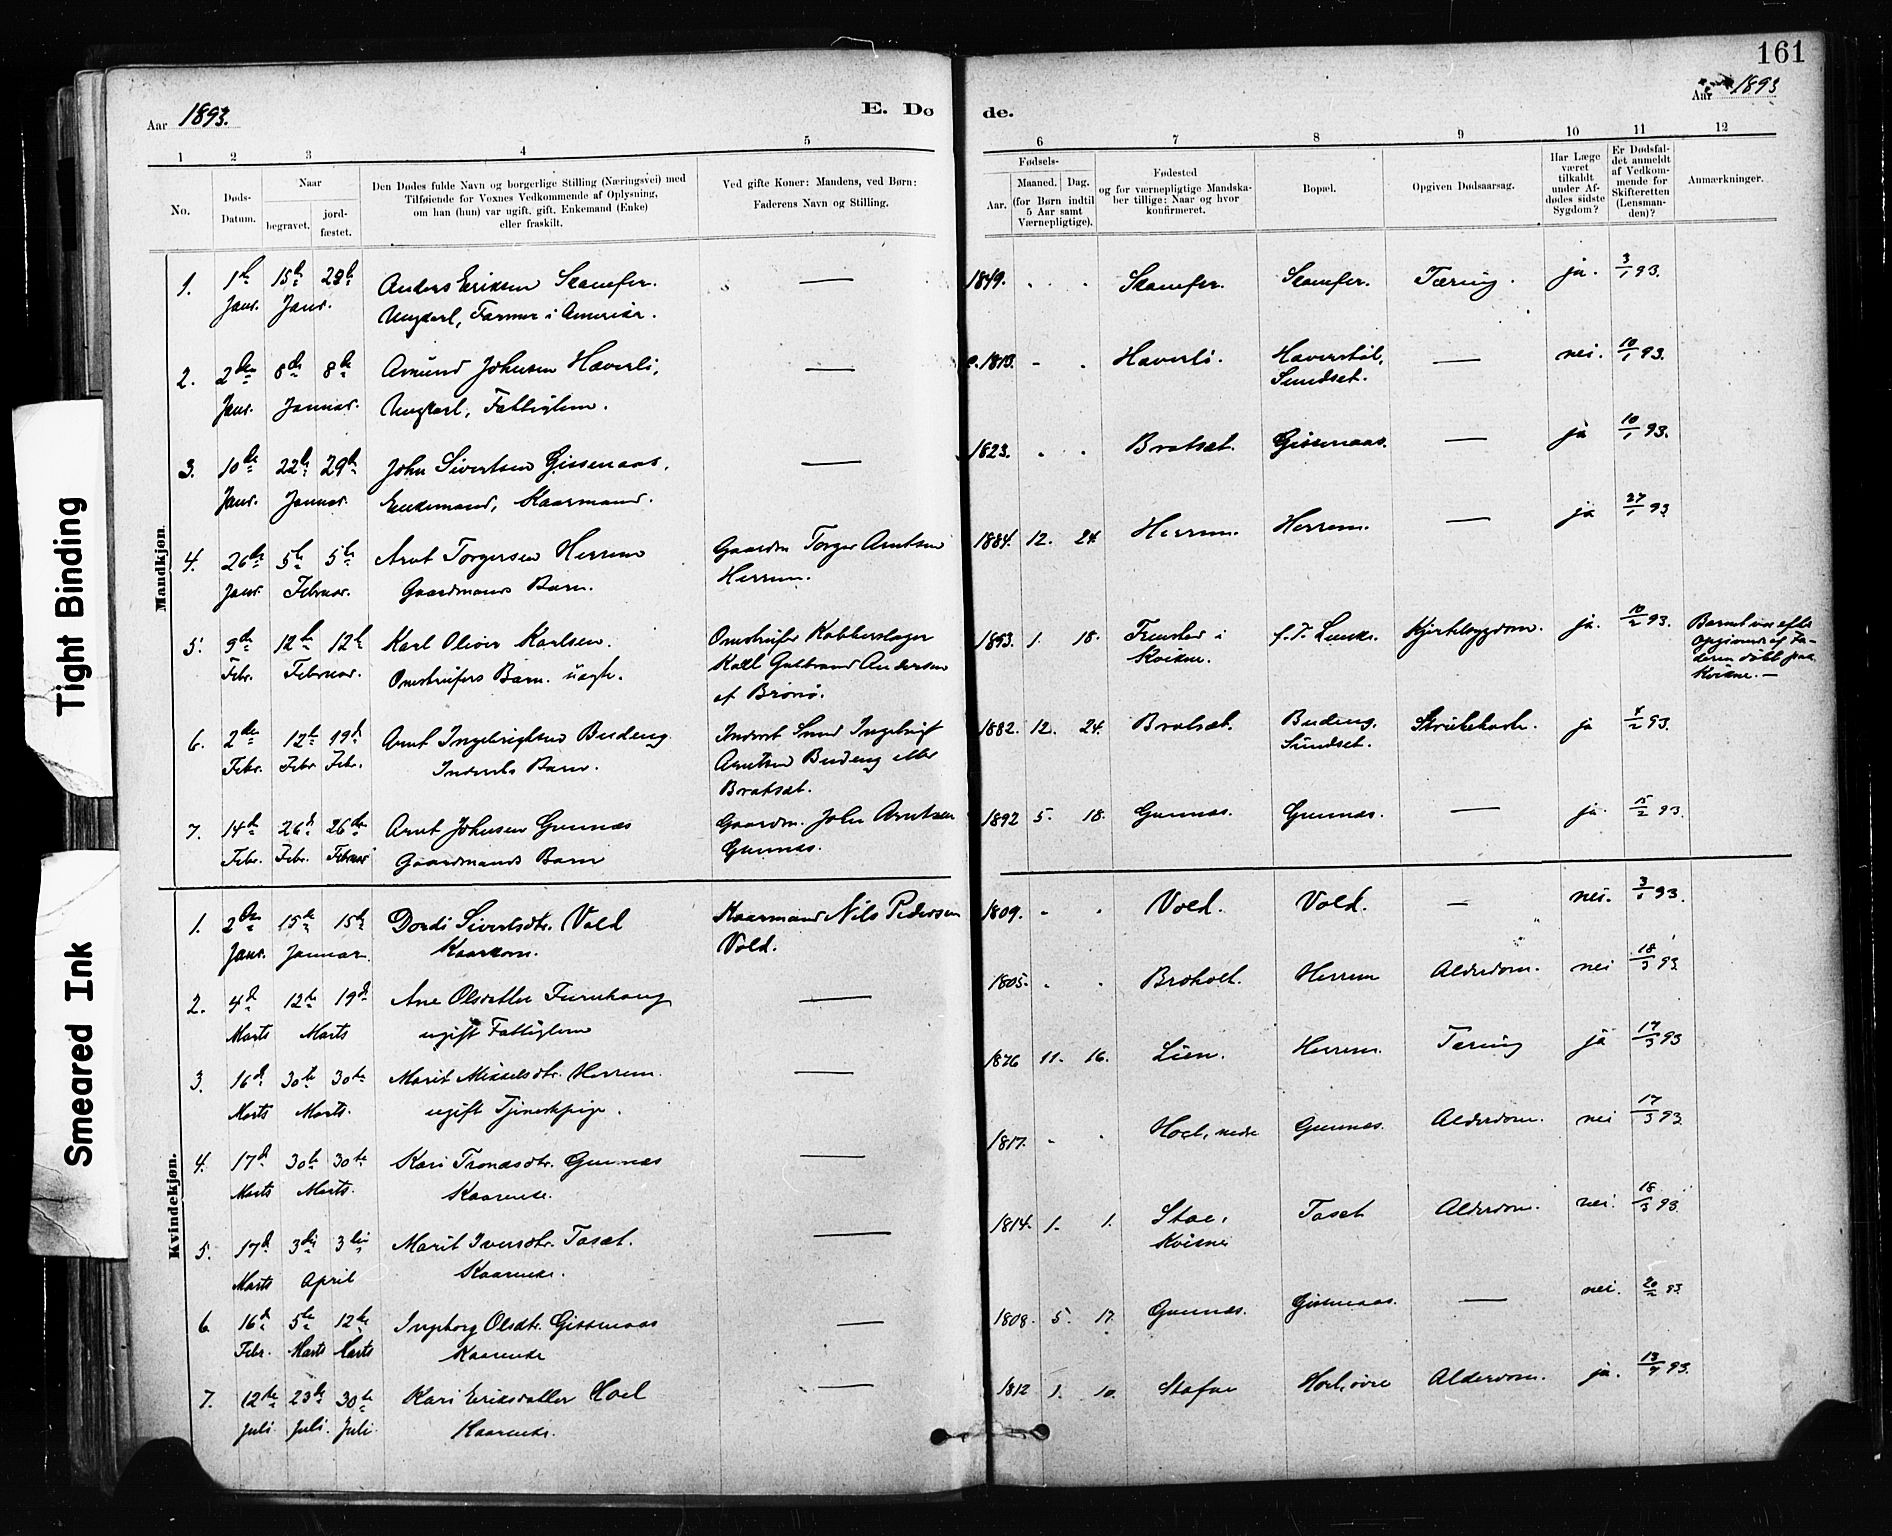 161
Aar 1893.
E. Dø
de.
Aar 1893
1 2 3 4 5 6 7 8 9 10 11 12
No.
Døds-
Datum.
Naar
begravet.
jord-
fæstet.
Den Dødes fulde Navn og borgerlige Stilling (Næringsvei) med
Tilføiende for Voxnes Vedkommende af Oplysning,
om han (hun) var ugift, gift, Enkemand (Enke)
eller fraskilt.
Ved gifte Koner: Mandens, ved Børn:
Faderens Navn og Stilling.
Fødsels-
Aar.
Maaned. Dag.
(for Børn indtil
5 Aar samt
Værnepligtige).
Fødested
og for værnepligtige Mandska-
ber tillige: Naar og hvor
konfirmeret.
Bopæl.
Opgiven Dødsaarsag.
Har Læge
været
tilkaldt
under Af-
dødes sidste
Sygdom?
Er Dødsfal-
det anmeldt
af Vedkom-
mende for
Skifteretten
(Lensman-
den)?
Anmærkninger.
Mandkjøn.
1. 1ste 15de 29de Anders Eriksen Stamfer. — 1849. Stamfer. Stamfer. Tæring. ja. 3/1 93.
Janr. Janr. Ungkarl, Farmer i Amerika.
2. 2den 8de 8de Amund Johnsen Haverli, — c. 1813. Haverli. Haverstøl, — nei. 10/1 93.
Sundset.
Janr. Januar. Ungkarl, Fattiglem.
3. 10de 22de 29de John Sivertsen Gissenaas, — 1823. Bratset. Gissenaas. — ja 10/1 93.
Janr. Januar. Enkemand, Kaarmand.
4. 26de 5te 5te Arnt Torgersen Herrem Gaardm Torger Arntsen 1884. 12. 24. Herrem. Herrem. — ja 27/1 93
Janr. Februar. Gaardmands Barn. Herrem.
5. 9de 12te 12te Karl Oliver Karlsen. Omstreifer Kobberslager 1893. 1. 18. i f. T. Kjertelsygdom. ja. 10/2 93. Barnet
Febr. Februar. Omstreifers Barn. Karl Gulbrand Andersen Kvikne.
af Brønø.
Kvikne. —
6. 2den 12te 19de Arnt Ingebrigtsen Budeng Inderst Smed Ingebrigt 1882. 12. 24. Bratset. Budeng, ja 4/2 93.
Sundset.
Febr. Febr Febr. Indersts Barn. Arntsen Budeng eller
Bratset.
7. 14de 26de 26de Arnt Johnsen Gunnæs Gaardm. John Arntsen 1892 5. 18. Gunnæs. Gunnæs. — ja. 15/2 93.
Febr. Febr. Februar Gaardmands Barn Gunnæs.
Kvindekjøn.
1. 2den 15de 15de Dordi Sivertsdtr. Vold Kaarmand Nils Pedersen 1809. Vold. Vold. — nei. 3/1 93.
Janr. Januar. Kaarkone. Vold.
2. 4de 12te 19de Ane Olsdatter Furuhaug — 1805. Broholt. Herrem Alderdom. nei 18/3 93.
Marts Marts ugift Fattiglem
3. 16de 30te 30te Marit Mikkelsdtr. Herrem. — 1876 11. 16. Lien. Herrem. Tæring ja 17/3 93
Marts Marts. ugift Tjenestpige.
4. 17de 30te 30te Kari Trondsdtr. Gunnæs — 1817. Hoel, nedre Gunnæs. Alderdom. nei 17/3 93.
Marts Marts. Kaarenke.
5. 17de 3die 3die Marit Iversdtr. Toset. — 1814. 1. 1. Stae, Toset Alderdom. nei. 18/3 93.
Kvikne
Marts April Kaarenke.
6. 16de 5te 12te Ingeborg Olsdtr. Gissenaas — 1808. 5. 17. Gunnæs. Gissenaas. — nei. 20/2 93
Febr. Marts Marts Kaarenke
7. 12te 23de 30te Kari Eriksdatter Hoel — 1812 1. 10. Stafne Hoel, øvre Alderdom. ja. 13/7 93.
Juli Juli. Juli Kaarenke.
Tight Binding
Smeared Ink